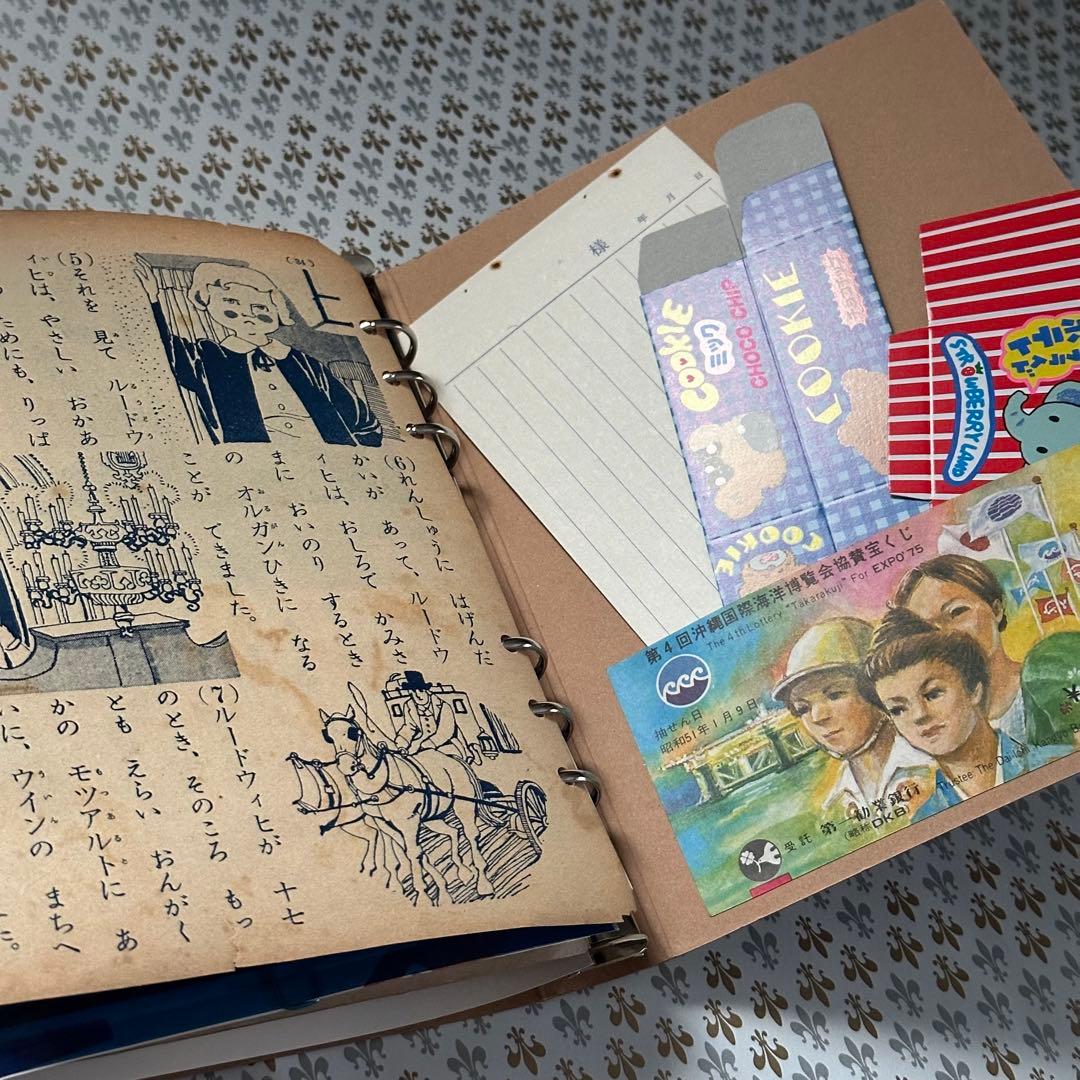 (34)
(5)それを 見て ルードウ
ィヒは、やさしい おかあ
ためにも、りっぱ
の オルガンひきに なる
ことが できました。
(6)れんしゅうに はげんだ
かいが あって、ルードウ
ィヒは、おしろで かみさ
まに おいのり するとき
(7)ルードウィヒが 十七
のとき、そのころ もっ
とも えらい おんがく
かの モツアルトに あ
いに、ウインの まちへ
た。
様
年 月 日
COOKIE
ミック
CHOCO CHIP
COOKIE
COOKIE
STRAWBERRY LAND
第4回沖縄国際海洋博覧会協賛宝くじ
The 4th Lottery "Takarakuji" For EXPO'75
抽せん日
昭和51年1月9日
受託 第一勧業銀行
(略称DKB)
Trustee: The Dai-Ichi Kangyo B